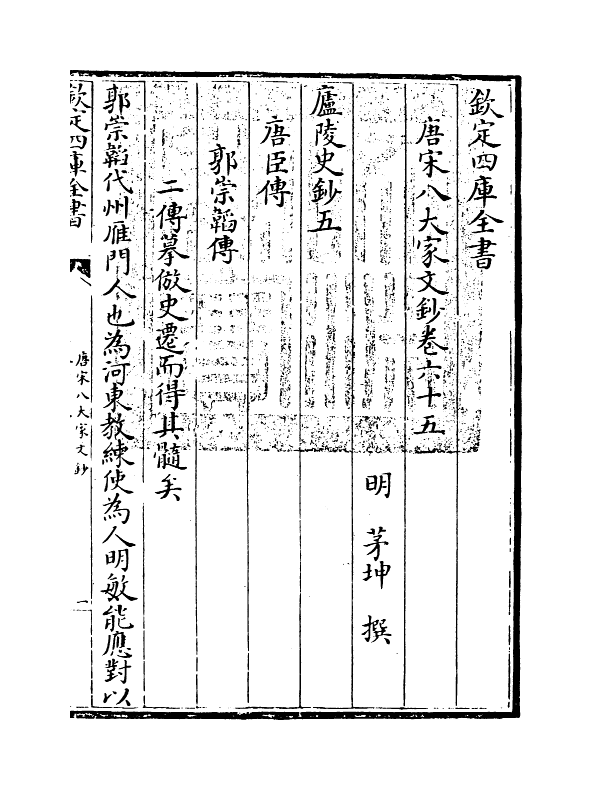 欽定四庫全書
唐宋八大家文鈔卷六十五
明 茅坤 撰
廬陵史鈔五
唐臣傳
郭崇韜傳
二傳摹倣史遷而得其髓矣
郭崇韜代州雁門人也為河東教練使為人明敏能應對以
欽定四庫全書
唐宋八大家文鈔
一